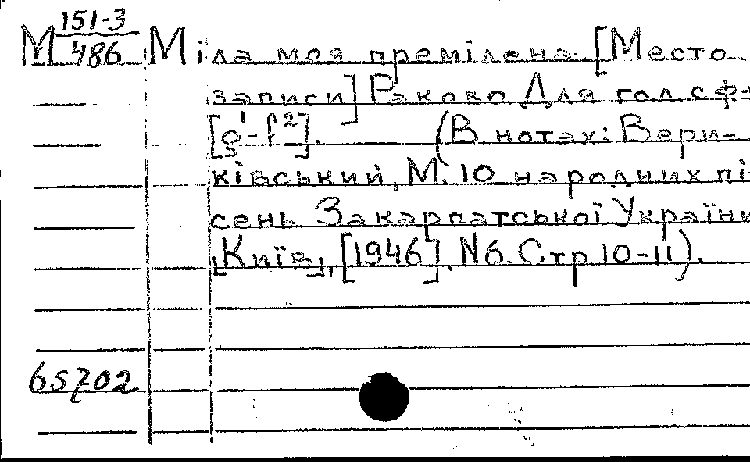 М 151-3/486 Міла моя премілена. [Место
записи] Раково Для гол с ф-
[g¹-f²]. (В нотах: Вери-
ківський, М. 10 народних пі-
сень Закарпатської України
[Київ], [1946]. N6. Стр 10-11).
65702